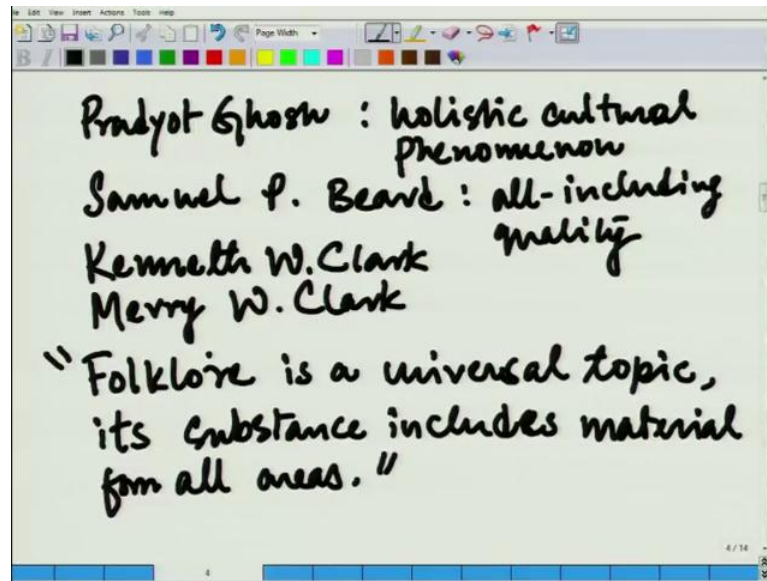 File Edit View Insert Actions Tools Help
Page Width
B I
Pradyot Ghosh : holistic cultural
phenomenon
Samuel P. Beard : all-including
quality
Kenneth W. Clark
Merry W. Clark
"Folklore is a universal topic,
its substance includes material
from all areas."
4/14
4